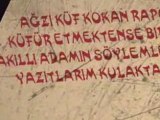 AĞZI KÜF KOKAN RAP
KÜFÜR ETMEKTENSE Bİ
AKILLI ADAMIN SÖYLEML
YAZITLARIM KULAKTA